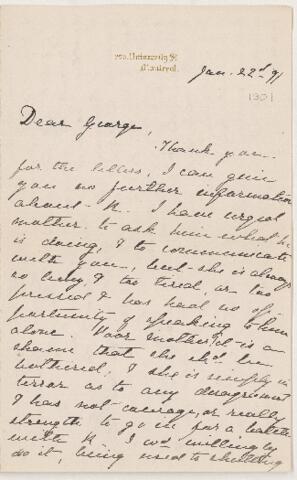 University St
Montreal.
Jan. 22nd 91
1891
Dear George,
Thank you
for the letters, I can give
you no further information
about K. I have urged
mother to ask him what he
is doing, & to communicate
with you, but she is always
so busy & too tired, or too
pressed & has had no op-
portunity of speaking to him
alone. Poor mother it is a
shame that she shd be
bothered, & she is simply in
terror as to any disagreement
& has not courage, or really
strength to go in for a battle
with K. I wd willingly
do it, being used to